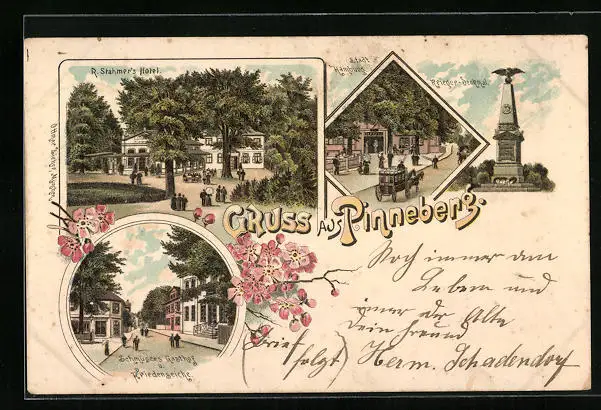 R. Stahmer's Hotel.
Stadt
Hamburg
Krieger-Denkmal.
GRUSS AUS Pinneberg.
Noch immer am
Leben und
immer der Alte
Dein Freund
Herm. Schadendorf
(Brief
folgt)
Schmüsers Gasthof
u.
Friedenseiche